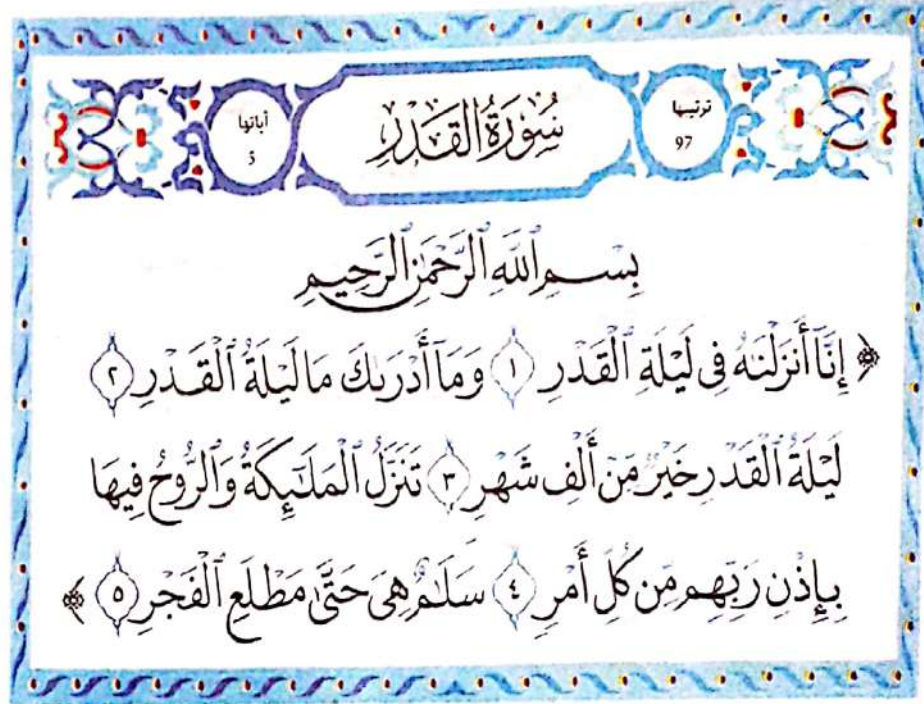 ترتيبها
97
سُورَةُ القَدْرِ
آياتها
5
بِسْمِ ٱللَّهِ ٱلرَّحْمَٰنِ ٱلرَّحِيمِ
﴿ إِنَّآ أَنزَلْنَٰهُ فِى لَيْلَةِ ٱلْقَدْرِ ١ وَمَآ أَدْرَىٰكَ مَا لَيْلَةُ ٱلْقَدْرِ ٢
لَيْلَةُ ٱلْقَدْرِ خَيْرٌ مِّنْ أَلْفِ شَهْرٍ ٣ تَنَزَّلُ ٱلْمَلَٰٓئِكَةُ وَٱلرُّوحُ فِيهَا
بِإِذْنِ رَبِّهِم مِّن كُلِّ أَمْرٍ ٤ سَلَٰمٌ هِىَ حَتَّىٰ مَطْلَعِ ٱلْفَجْرِ ٥ ﴾